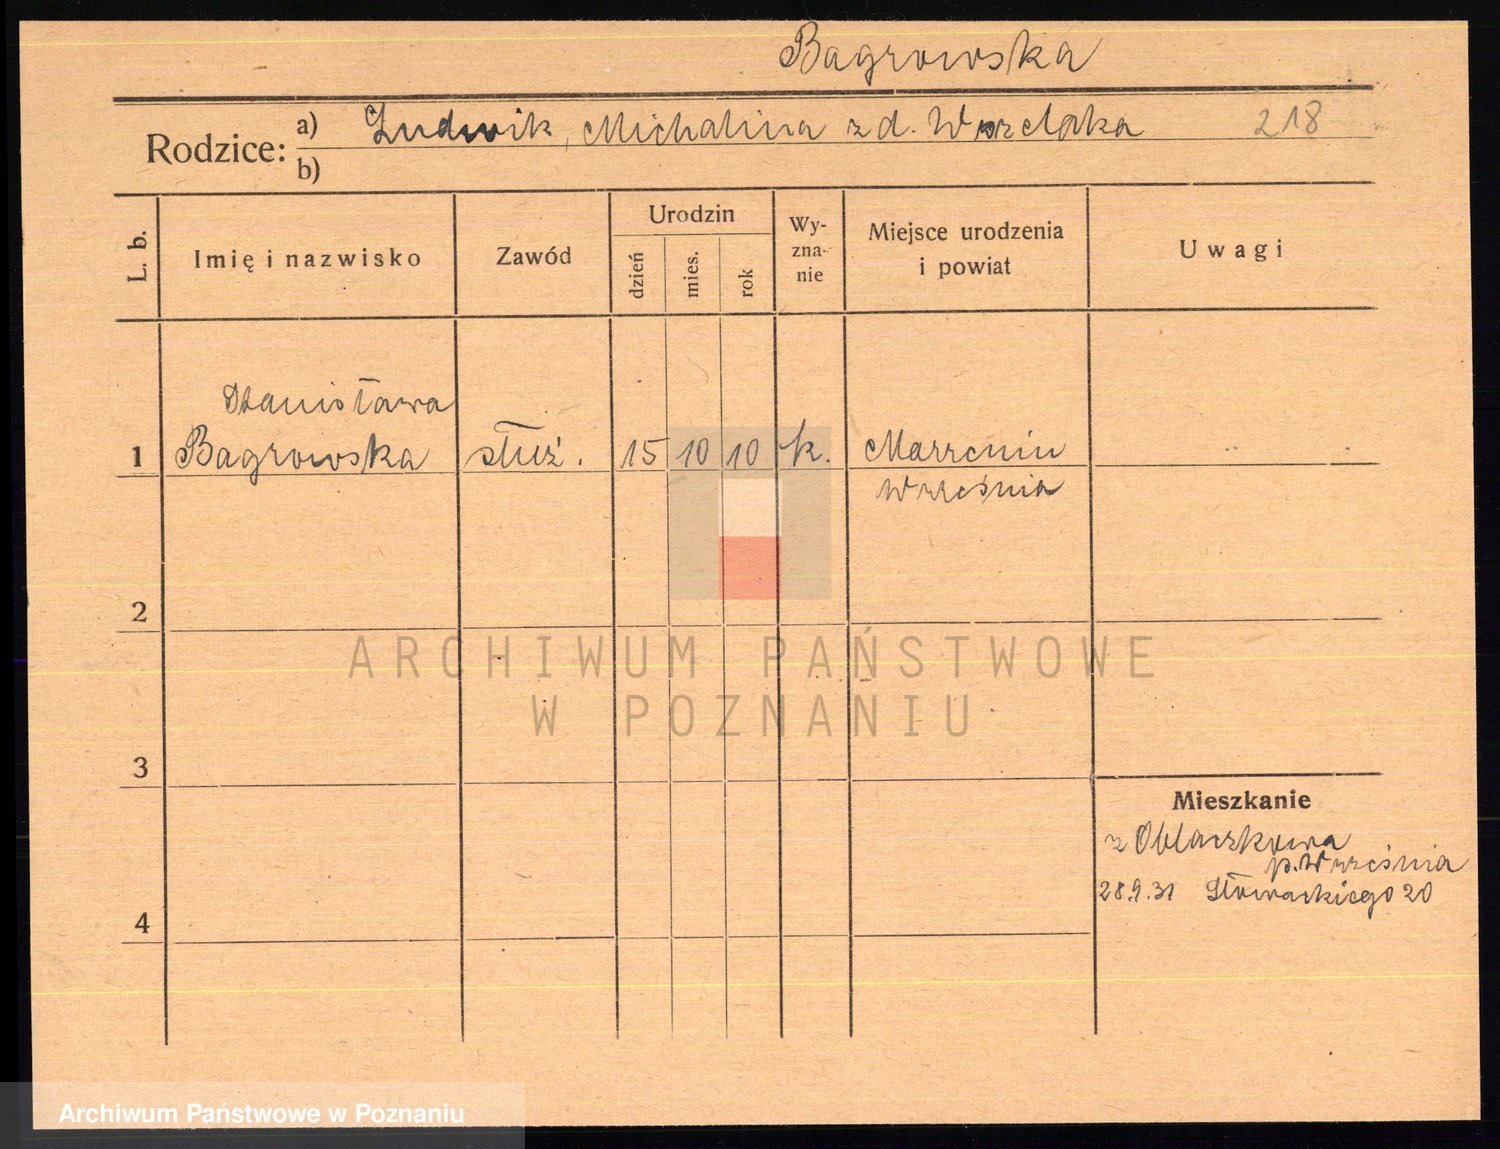 Bagrowska
Rodzice: a) Ludwik, Michalina z d. 218
b)
L. b. Imię i nazwisko Zawód Urodzin dzień mies. rok Wy-zna-nie Miejsce urodzenia i powiat Uwagi
Stanisława
1 Bagrowska służ. 15 10 10 k. Marzenin
Września
2
ARCHIWUM PAŃSTWOWE
W POZNANIU
3
Mieszkanie
z Obłaczkowa
p. Września
28.9.31 Słowackiego 20
4
Archiwum Państwowe w Poznaniu